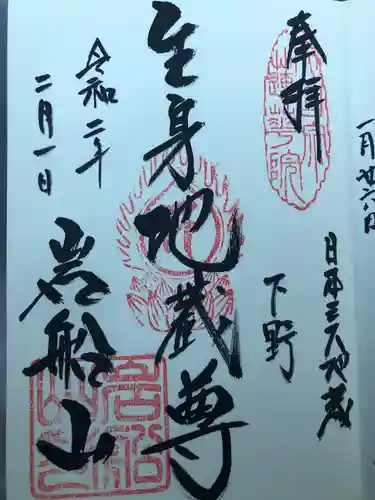 奉拝
日本三大地蔵
下野
生身地蔵尊
令和二年
二月一日
岩船山